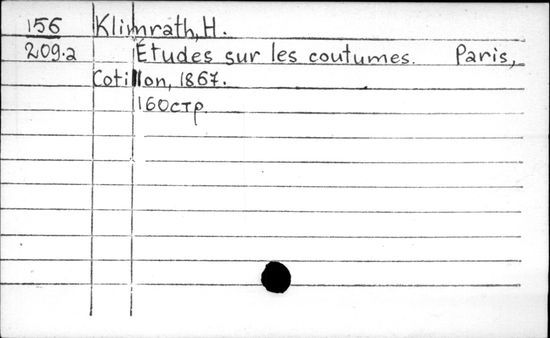 156 Klimrath, H.
209.2 Études sur les coutumes. Paris,
Cotillon, 1867.
160стр